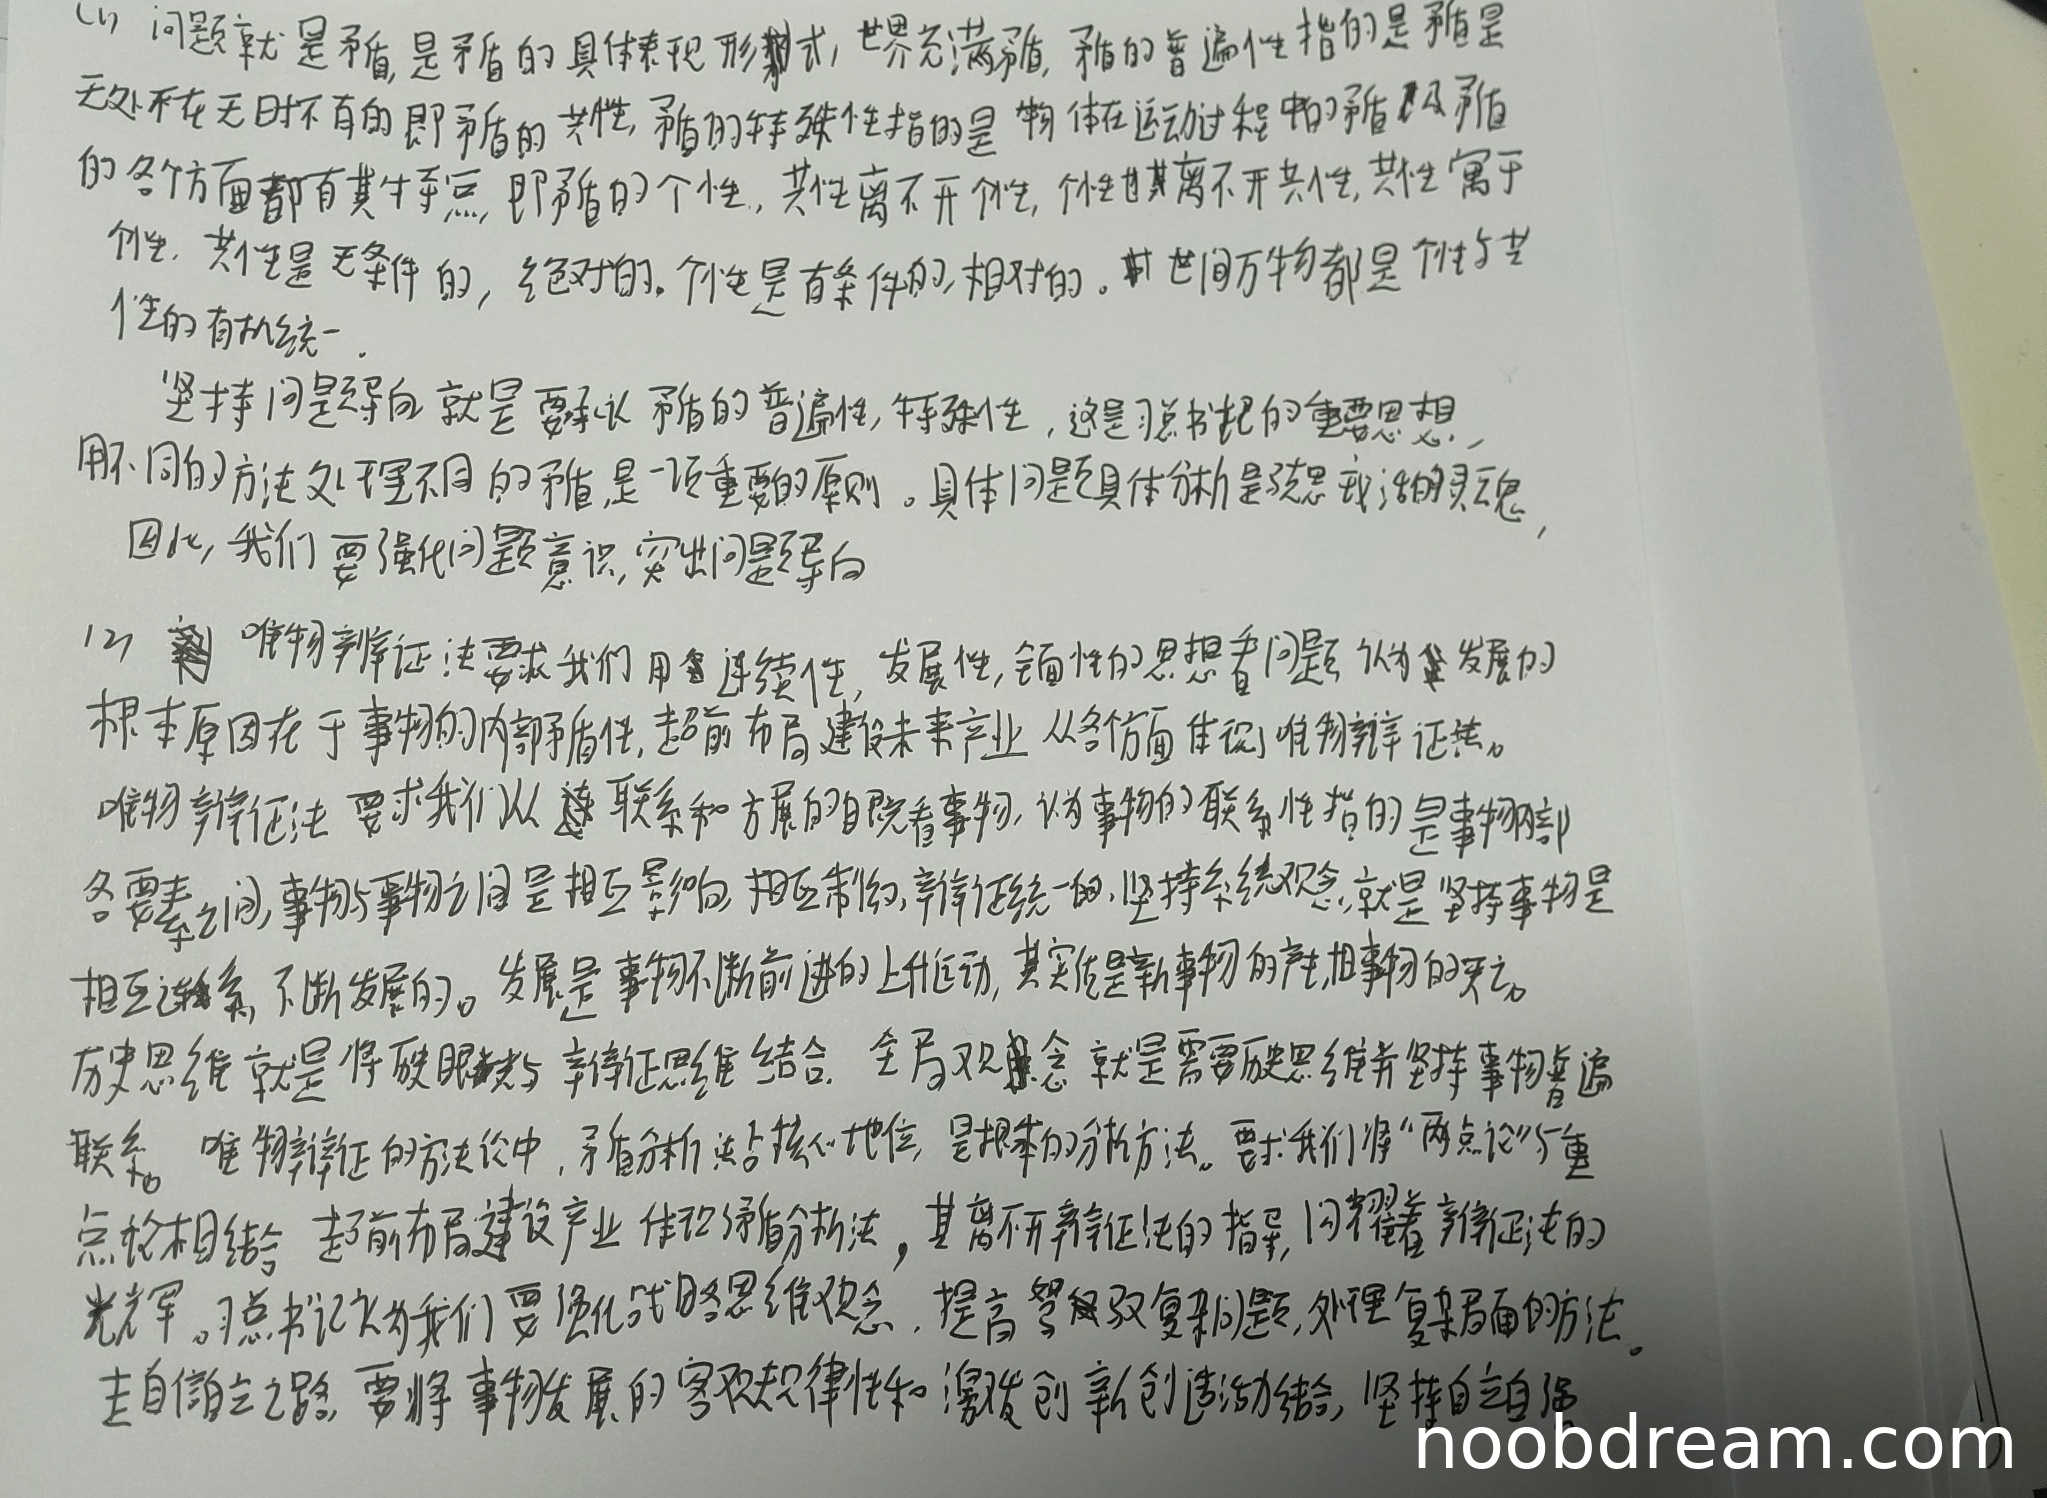 (1) 问题就是矛盾,是矛盾的具体表现形式,世界充满矛盾,矛盾的普遍性指的是矛盾是
无处不在无时不有的即矛盾的共性,矛盾的特殊性指的是物体在运动过程中的矛盾及矛盾
的各个方面都有其特点,即矛盾的个性,共性离不开个性,个性也离不开共性,共性寓于
个性.共性是无条件的,绝对的。个性是有条件的,相对的。世间万物都是个性与共
性的有机统一.
坚持问题导向就是要承认矛盾的普遍性,特殊性,这是习总书记的重要思想,
用不同的方法处理不同的矛盾,是一项重要的原则。具体问题具体分析是活的灵魂,
因此,我们要强化问题意识,突出问题导向
(2) 唯物辨证法要求我们用连续性,发展性,全面性的思想看问题 认为发展的
根本原因在于事物的内部矛盾性,超前布局建设未来产业从各个方面体现了唯物辩证法。
唯物辩证法要求我们从联系和方展的目光看事物,认为事物的联系性指的是事物内部
各要素之间,事物与事物之间是相互影响,相互制约,辩证统一的,坚持系统观念,就是坚持事物是
相互连系,不断发展的。发展是事物不断前进的上升运动,其实质是新事物的产生,旧事物的灭亡。
历史思维就是将历史眼光与辩证思维结合.全局观念就是需要历史思维并坚持事物普遍
联系。唯物辩证的方法论中,矛盾分析法占核心地位,是根本的分析方法。要求我们将“两点论”与重
点论相结合 超前布局建设产业体现矛盾分析法,其离不开辩证法的指导,闪耀着辩证法的
光辉。习总书记认为我们要强化战略思维观念,提高驾驭复杂问题,处理复杂局面的方法。
走自信自立之路,要将事物发展的客观规律性和激发创新创造活动结合,坚持自立自强
noobdream.com